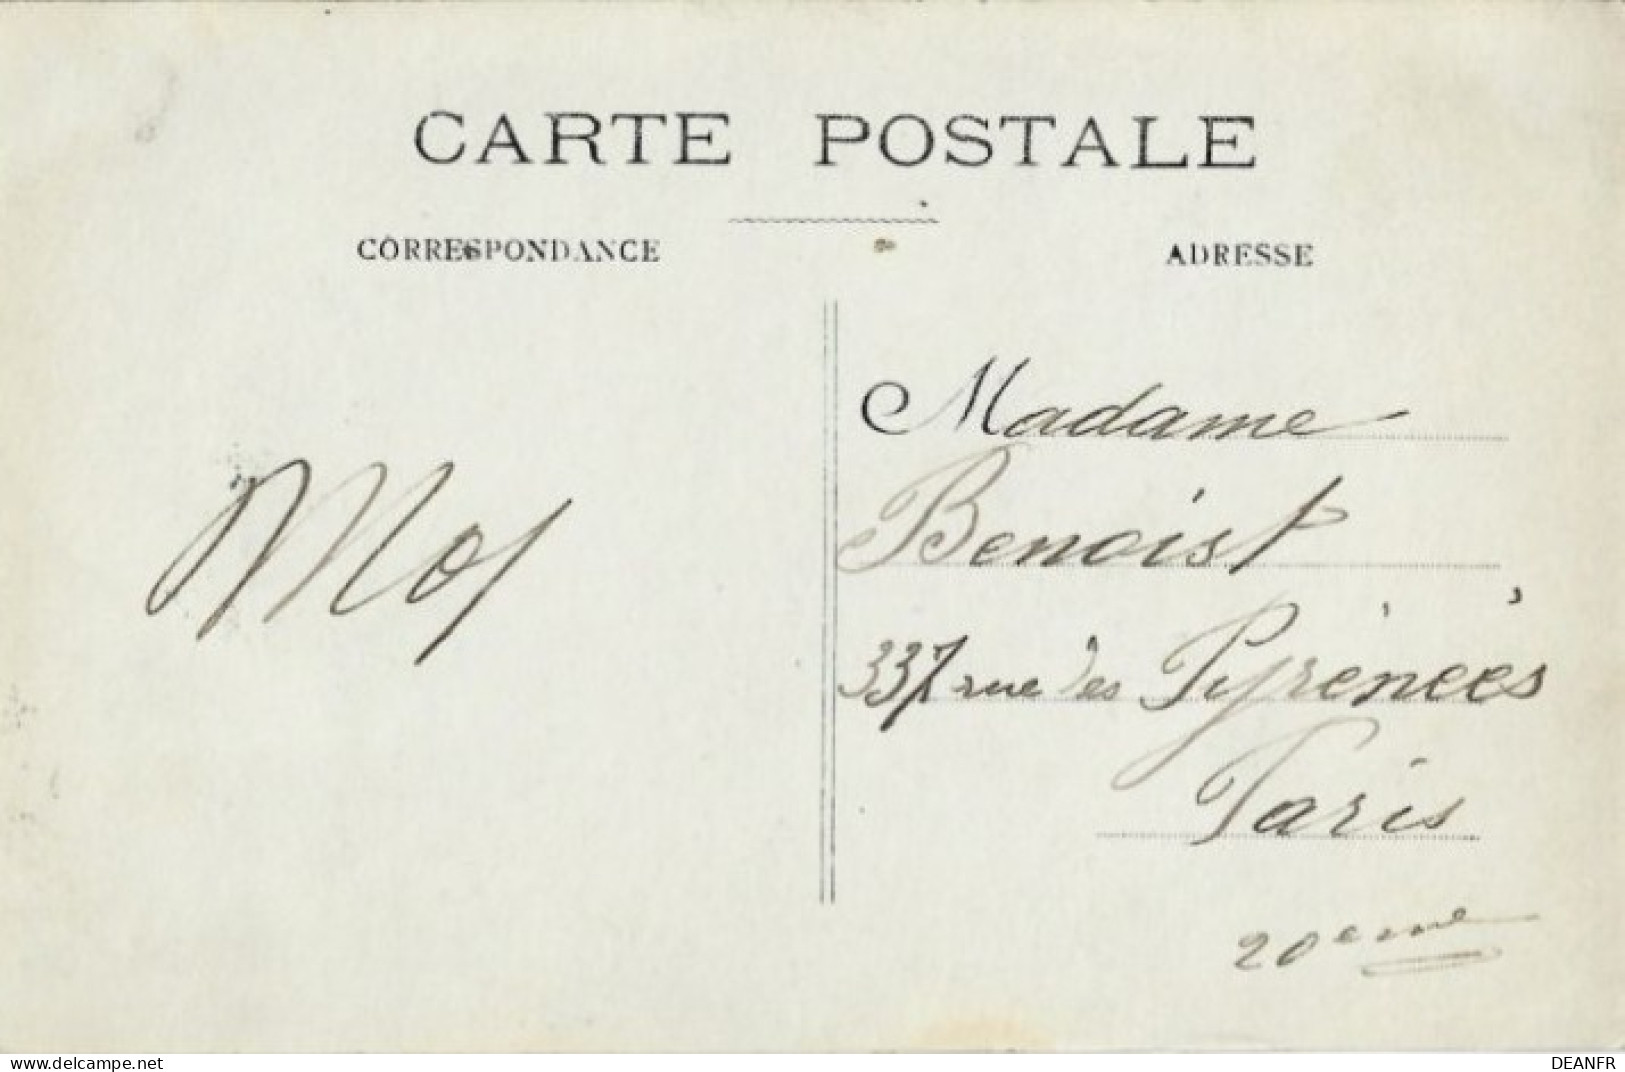 CARTE POSTALE
CORRESPONDANCE
ADRESSE
Madame
Benoist
337 rue des Pyrénées
Paris
20eme
delcampe.net
DEANFR